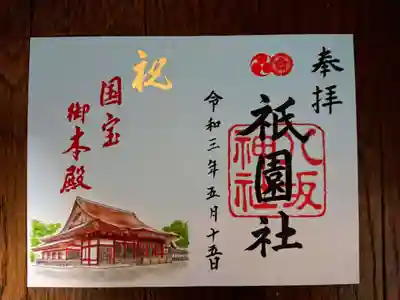 奉拝
祇園社
八坂神社
令和三年五月十五日
祝
国宝
御本殿